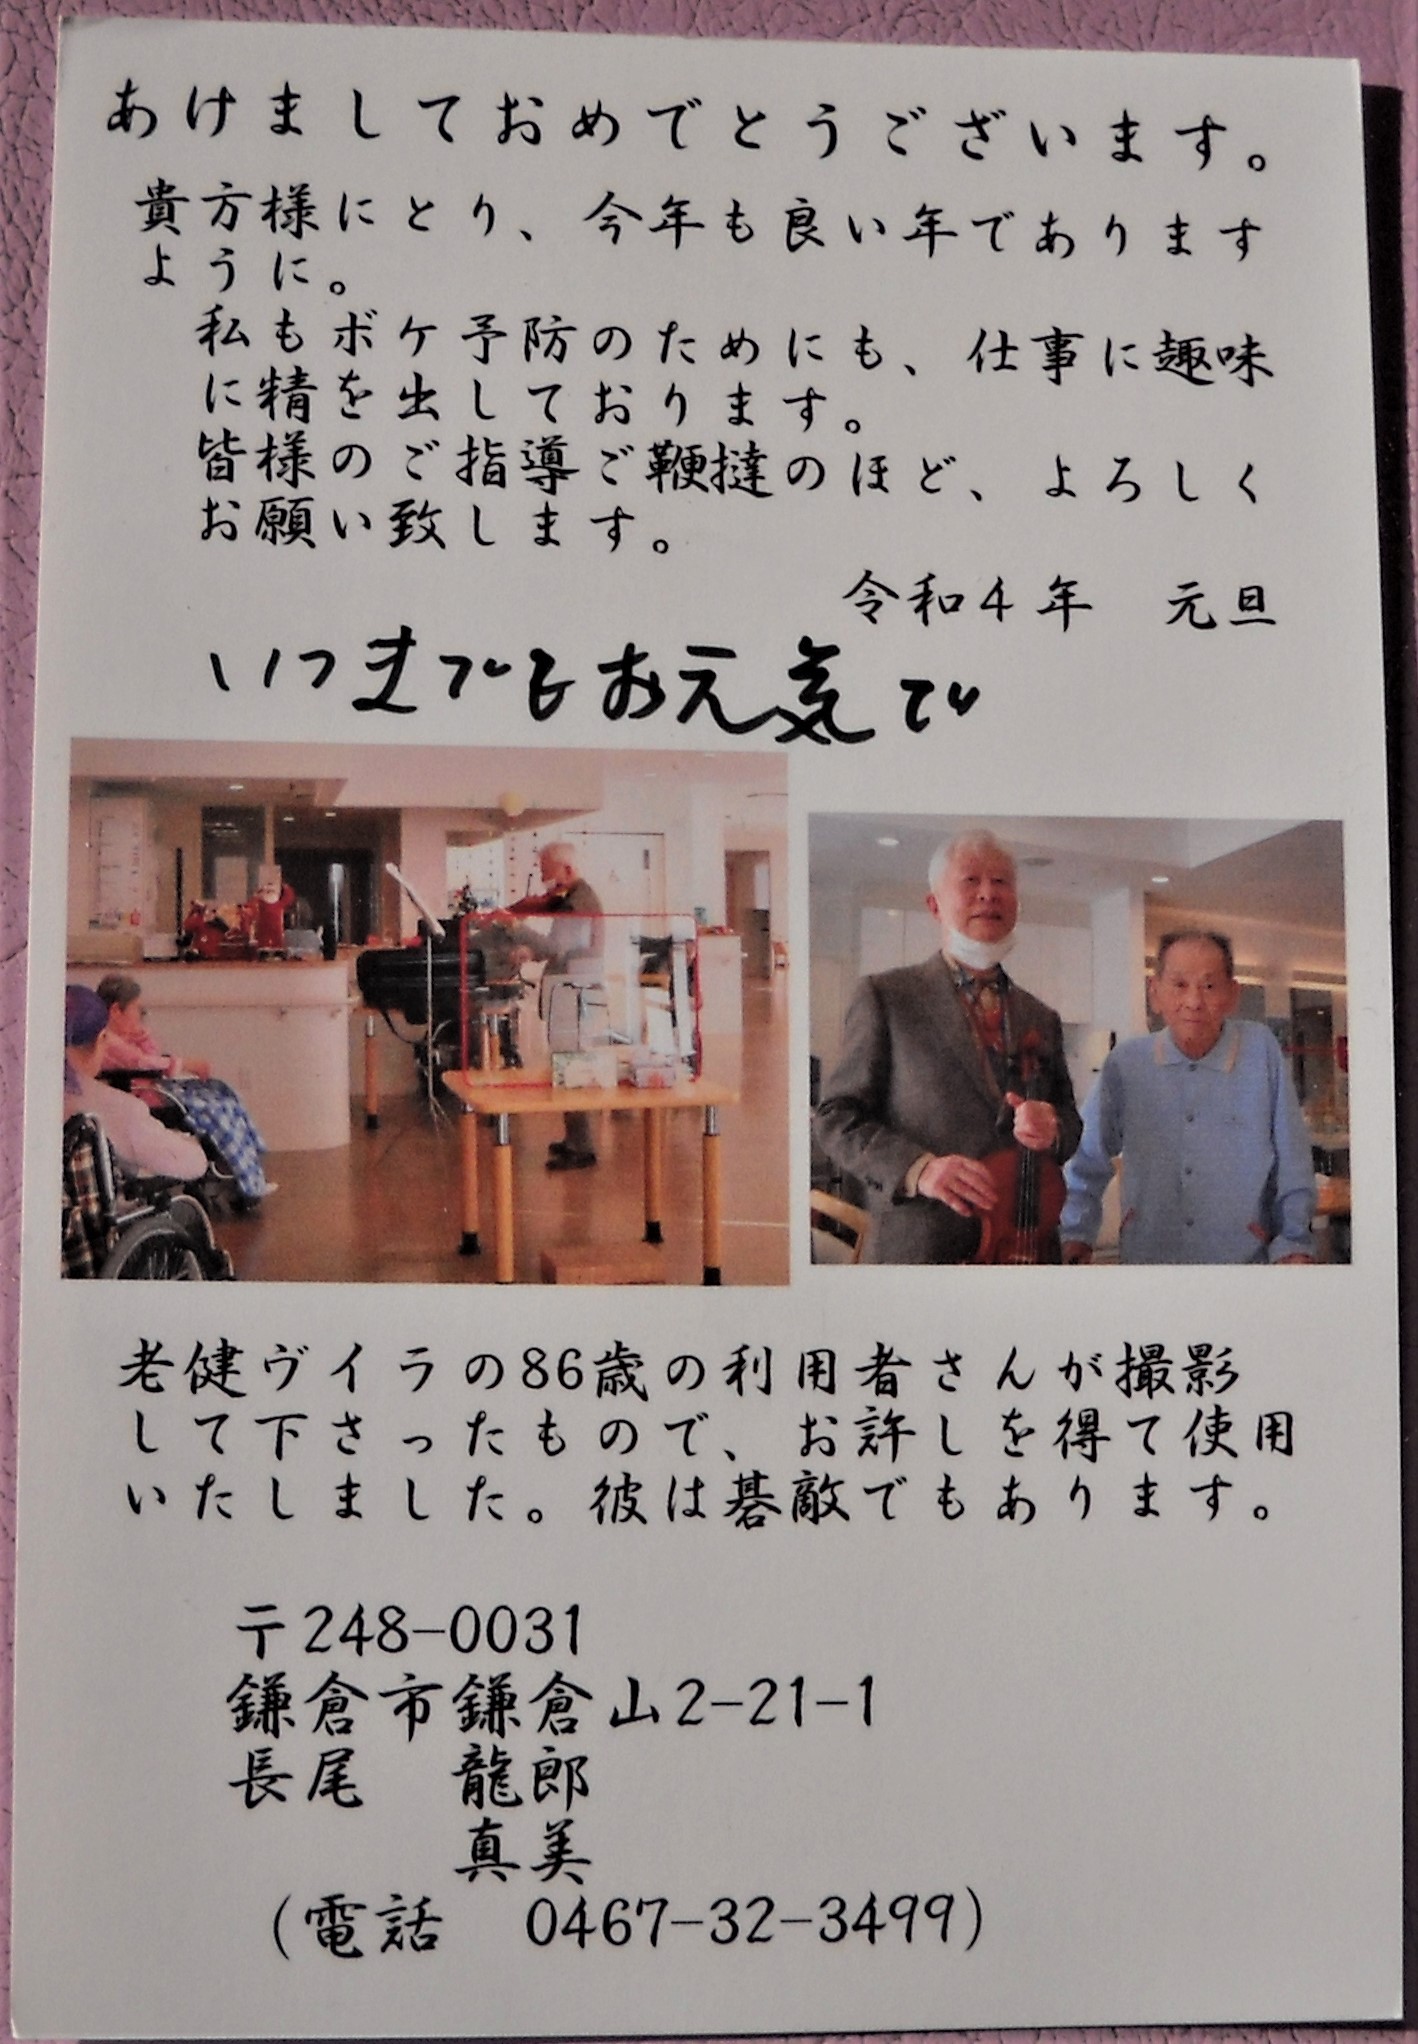 あけましておめでとうございます。
貴方様にとり、今年も良い年であります
ように。
私もボケ予防のためにも、仕事に趣味
に精を出しております。
皆様のご指導ご鞭撻のほど、よろしく
お願い致します。
令和4年　元旦
いつまでもお元気で
老健ヴイラの86歳の利用者さんが撮影
して下さったもので、お許しを得て使用
いたしました。彼は碁敵でもあります。
〒248-0031
鎌倉市鎌倉山2-21-1
長尾　龍郎
真美
(電話　0467-32-3499)